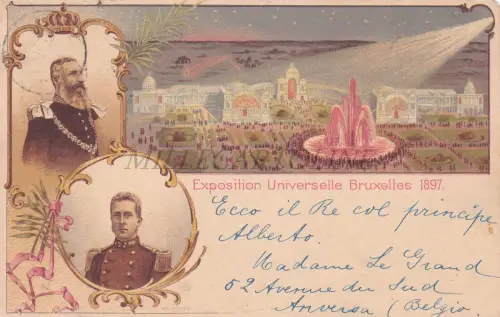 Exposition Universelle Bruxelles 1897.
Ecco il Re col principe
Alberto.
Madame Le Grand
52 Avenue du Sud
Anversa (Belgio